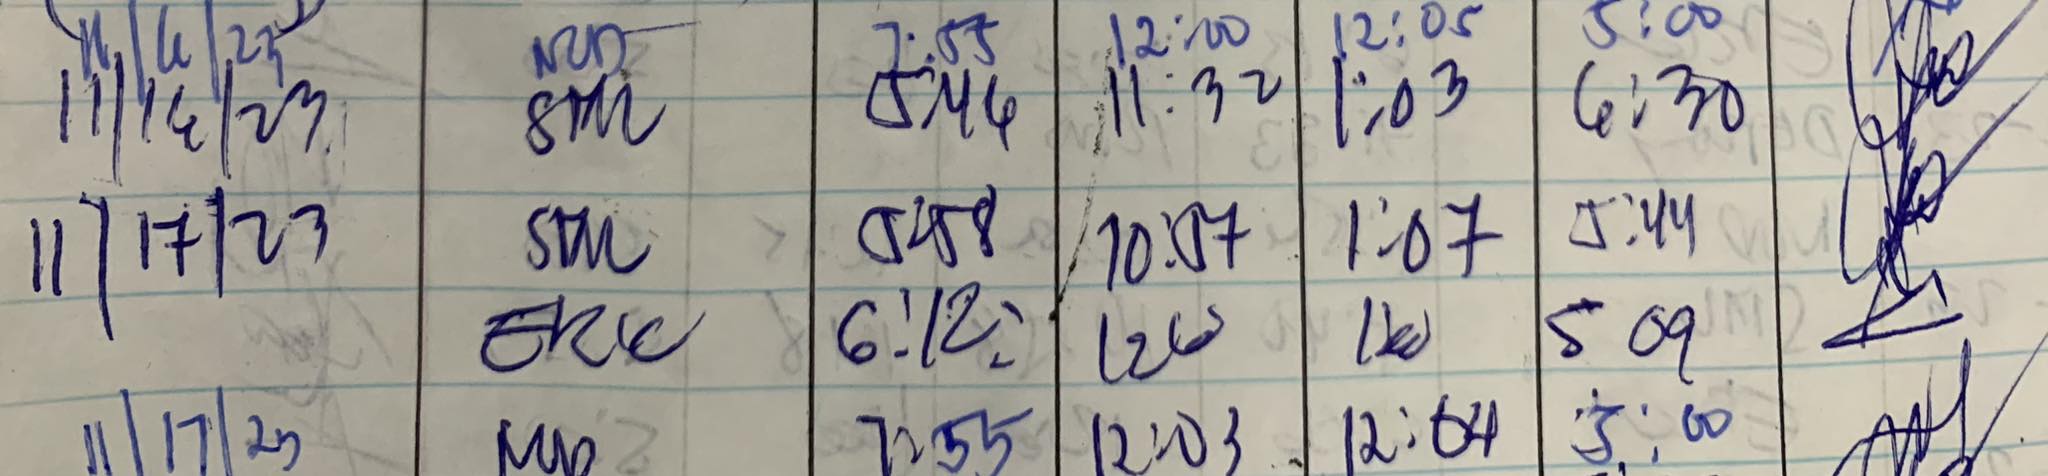 11/16/23 NUD 7:55 12:00 12:05 5:00
11/16/23 STM 5:46 11:32 1:03 6:30
11/17/23 STM 5:58 10:57 1:07 5:44
6:12 5 09
11/17/23 7:55 12:03 12:04 5:00